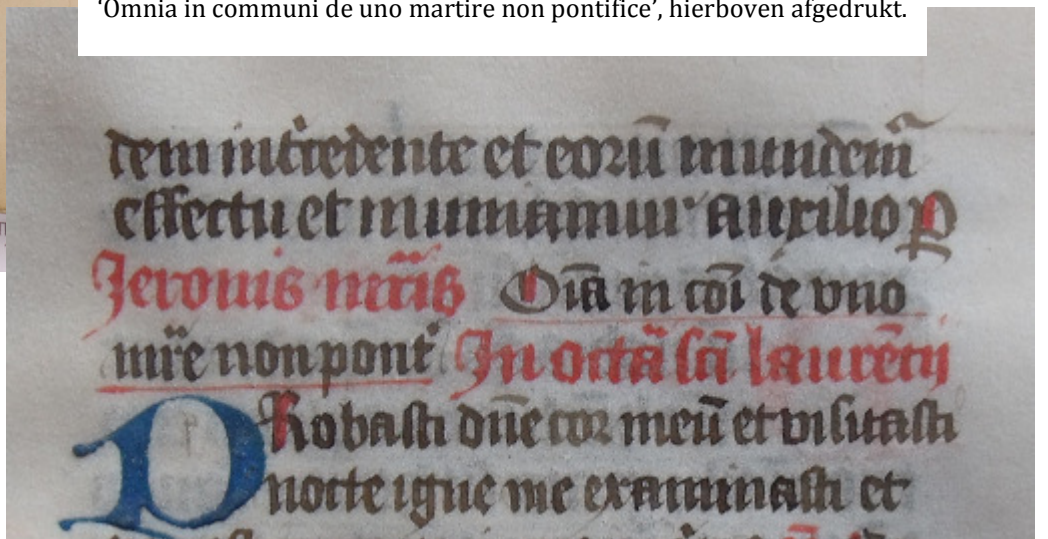 ‘Omnia in communi de uno martire non pontifice’, hierboven afgedrukt.
dem int̾cedente et eorū mundem̃
effectu et muniamur auxilio P̲
Jeronis mr̄is Oīa in cōi de vno
mr̄e non pont̾ In octā sc̄i laurēcij
PRobasti dn̄e cor meū et visitasti
nocte igne me examinasti et